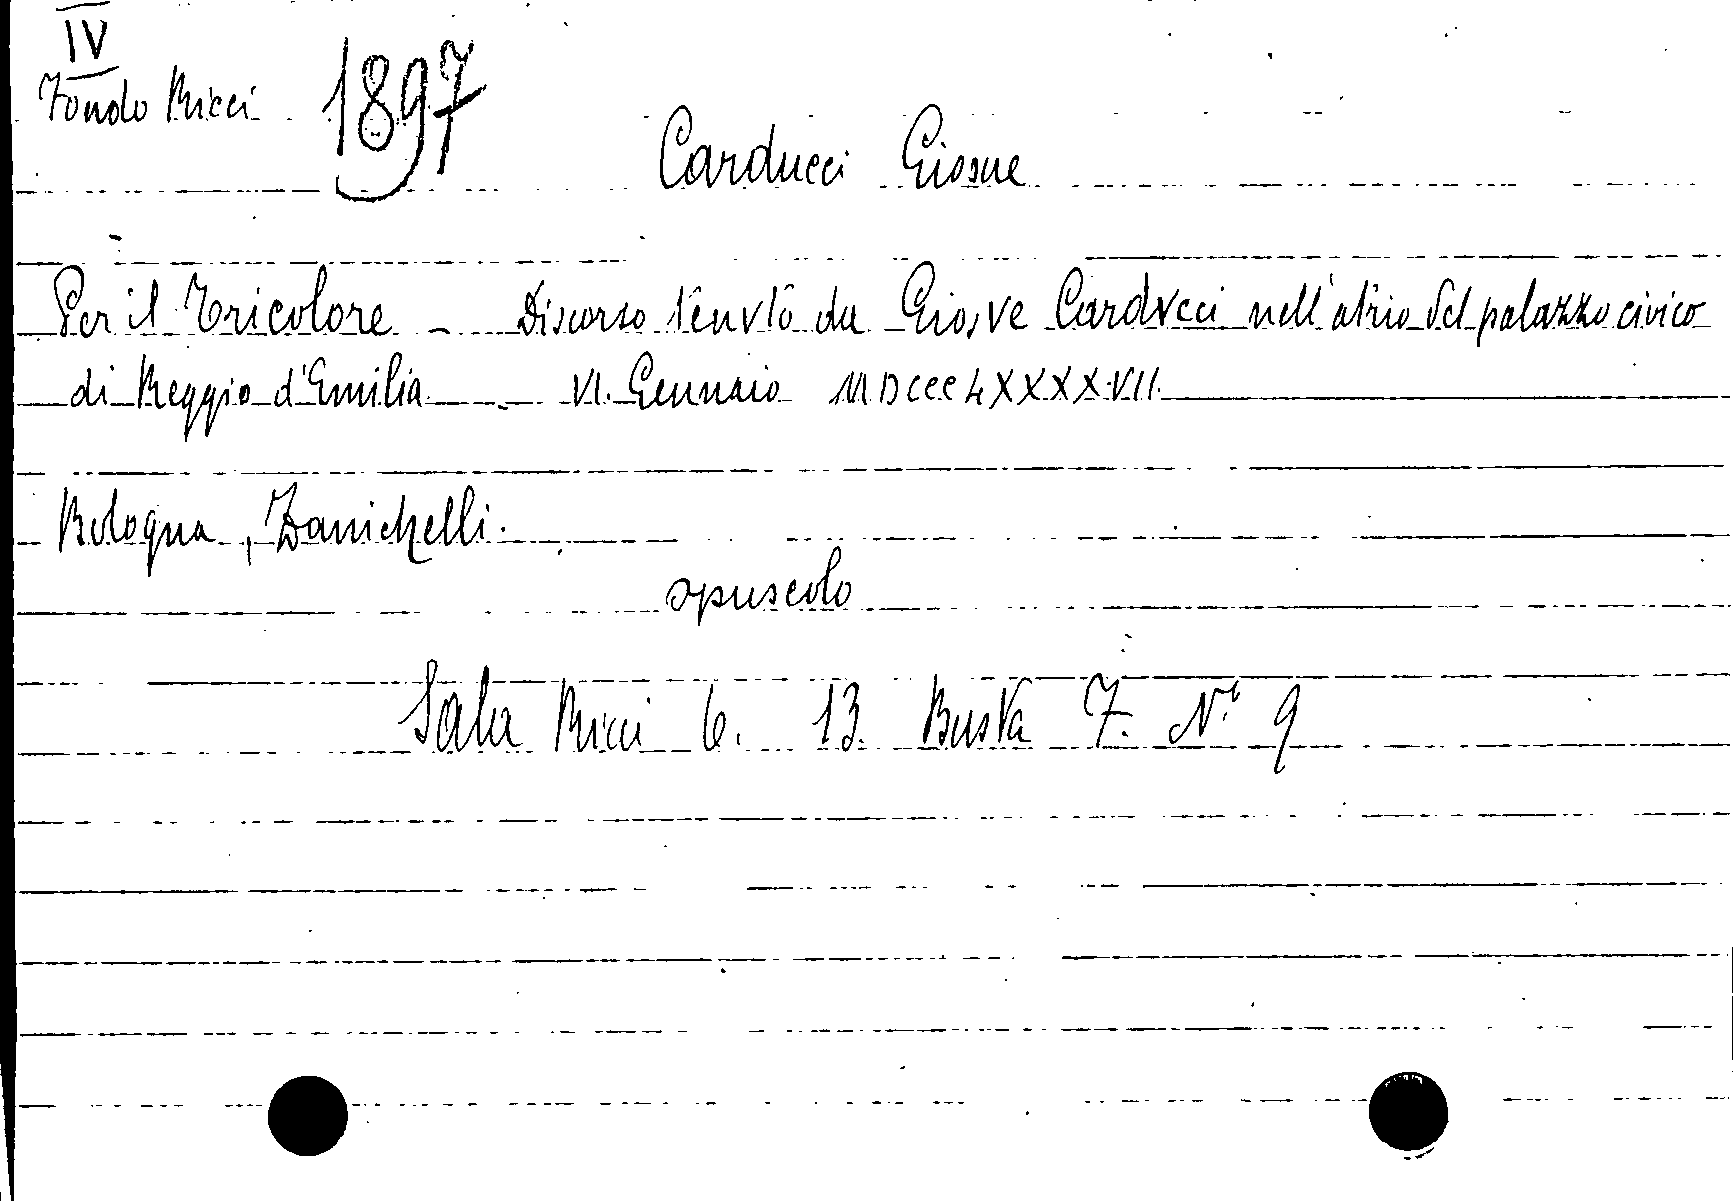 IV
Fondo Ricci 1897
Carducci Giosue
Per il Tricolore - Discorso tenvto da Giosve Cardvcci nell'atrio del palazzo civico
di Reggio d'Emilia - VI. Gennaio MDCCCLXXXXVII.
Bologna, Zanichelli.
opuscolo
Sala Ricci 6. 13. Busta 7. N. 9